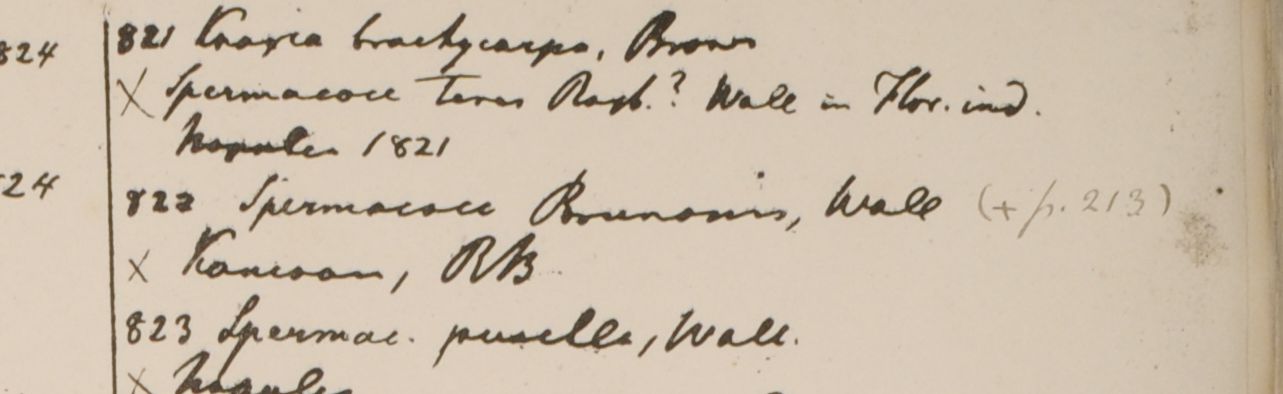 824
821 Knoxia brachycarpa, Brown
× Spermacoce teres Roxb.? Wall in Flor. ind.
Napalia 1821
24
822 Spermacoce Brunonis, Wall (+ p. 213)
× RB
823 Spermac. pusilla, Wall.
× Napalia